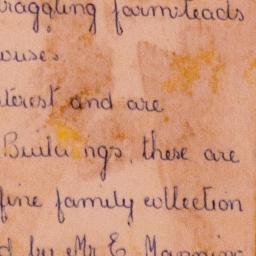 raggling farmsteads
ouses
terest and are
Buildings, these are
fine family collection
d by Mr E. Manning